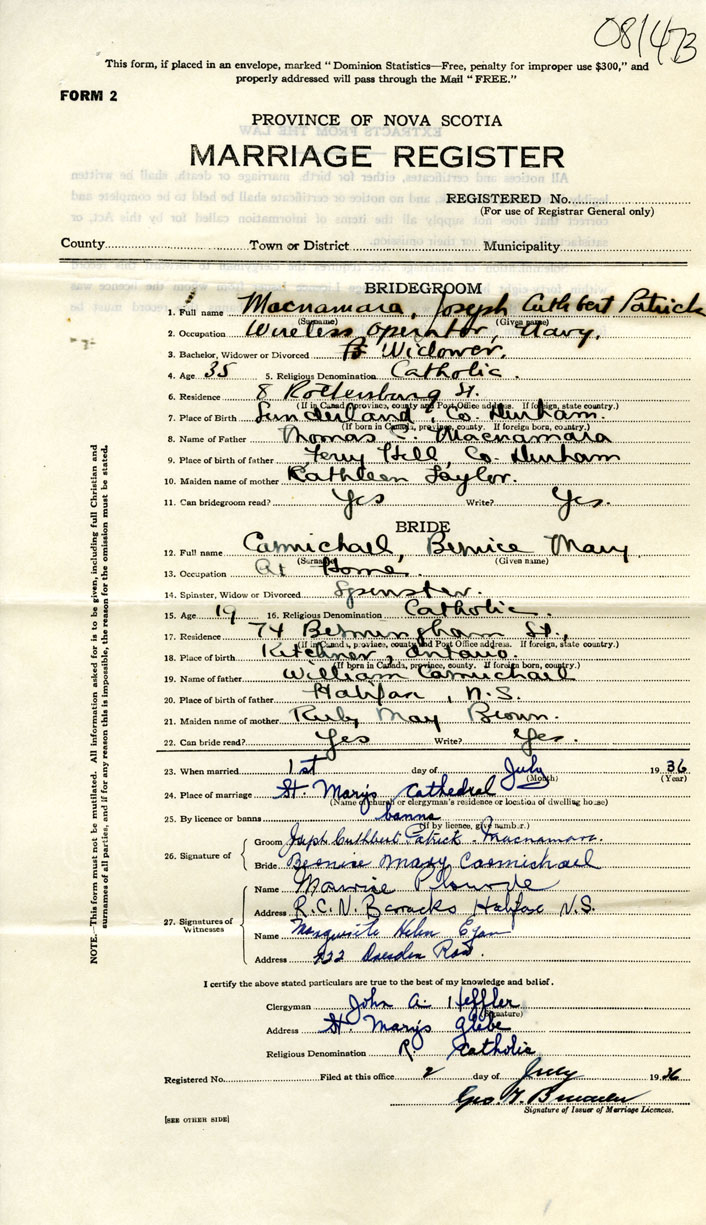 08/473
This form, if placed in an envelope, marked "Dominion Statistics—Free, penalty for improper use $300," and
properly addressed will pass through the Mail "FREE."
FORM 2
PROVINCE OF NOVA SCOTIA
MARRIAGE REGISTER
REGISTERED No.
(For use of Registrar General only)
County Town or District Municipality
BRIDEGROOM
1. Full name Macnamara, Joseph Cuthbert Patrick
(Surname) (Given name)
2. Occupation Wireless Operator, Navy.
3. Bachelor, Widower or Divorced Widower.
4. Age 35 5. Religious Denomination Catholic.
6. Residence 8 St.
(If in Canada, province, county and Post Office address. If foreign, state country.)
7. Place of Birth Sunderland, Co. Durham.
(If born in Canada, province, county. If foreign born, country.)
8. Name of Father Thomas C. Macnamara
9. Place of birth of father Ferry Hill, Co. Durham
10. Maiden name of mother Kathleen Taylor.
11. Can bridegroom read? Yes Write? Yes.
BRIDE
12. Full name Carmichael, Bernice Mary
(Surname) (Given name)
13. Occupation At Home.
14. Spinster, Widow or Divorced Spinster.
15. Age 19 16. Religious Denomination Catholic.
17. Residence 74 Bermingham St.,
(If in Canada, province, county and Post Office address. If foreign, state country.)
18. Place of birth Kitchner, Ontario.
(If born in Canada, province, county. If foreign born, country.)
19. Name of father William Carmichael
20. Place of birth of father Halifax, N.S.
21. Maiden name of mother Ruby May Brown.
22. Can bride read? Yes Write? Yes.
23. When married 1st day of July 1936
(Month) (Year)
24. Place of marriage St. Mary's Cathedral
(Name of church or clergyman's residence or location of dwelling house)
25. By licence or banns banns
(If by licence, give number.)
26. Signature of
Groom Joseph Cuthbert Patrick Macnamara.
Bride Bernice Mary Carmichael
27. Signatures of Witnesses
Name Maurice Plourde
Address R.C.N. Barracks Halifax N.S.
Name Marguerite Helen Egan
Address Dresden Row.
I certify the above stated particulars are true to the best of my knowledge and belief.
Clergyman John A. Heffler
(Signature)
Address St. Mary's Glebe
Religious Denomination R. Catholic
Registered No. Filed at this office 2 day of July 1936
Geo.
Signature of Issuer of Marriage Licences.
[SEE OTHER SIDE]
NOTE.—This form must not be mutilated. All information asked for is to be given, including full Christian and
surnames of all parties, and if for any reason this is impossible, the reason for the omission must be stated.